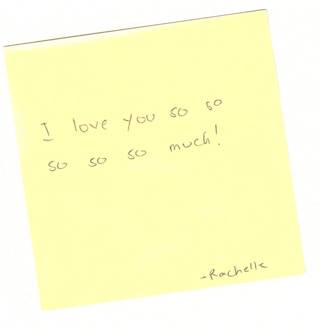 I love you so so
so so so much!
-Rachelle